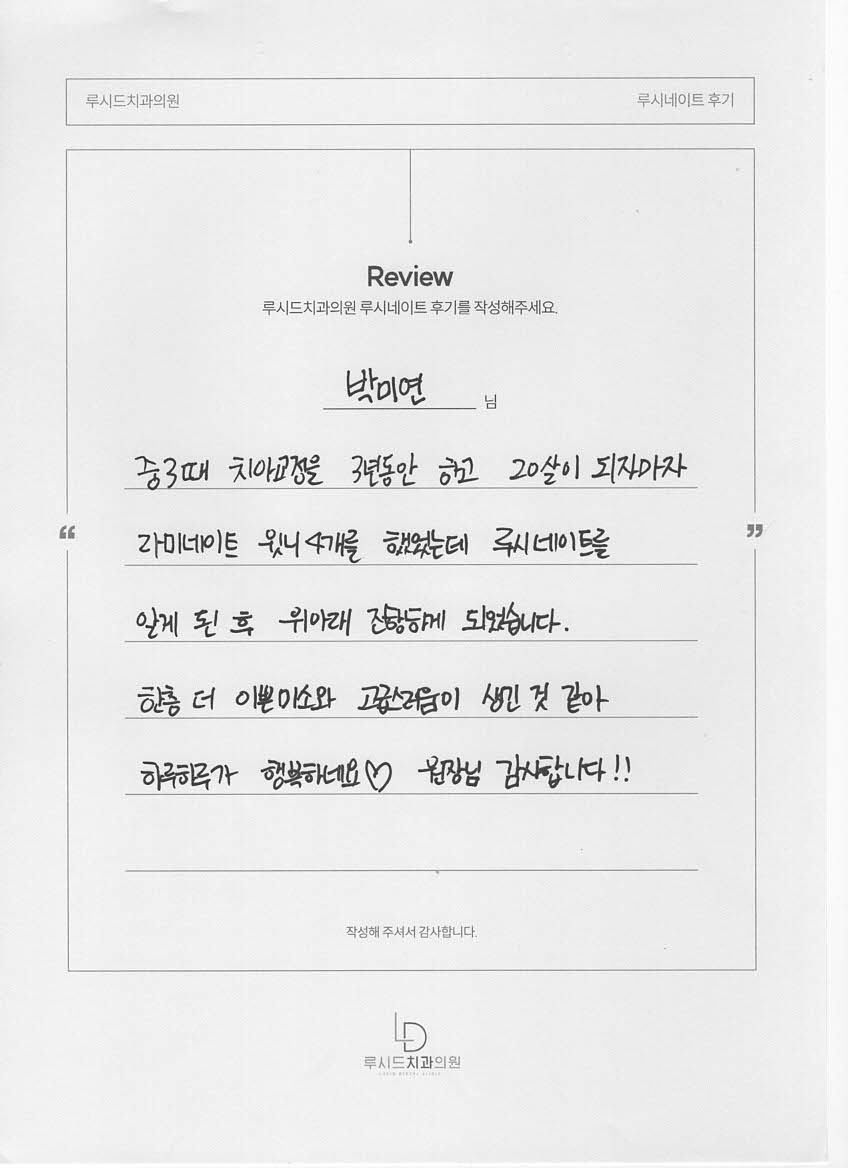 루시드치과의원
루시네이트 후기
Review
루시드치과의원 루시네이트 후기를 작성해주세요.
박미연 님
중3때 치아교정을 3년동안 하고 20살이 되자마자
“
라미네이트 윗니 4개를 했었는데 루시네이트를
”
알게 된 후 위아래 진행하게 되었습니다.
한층 더 이쁜미소와 고급스러움이 생긴 것 같아
하루하루가 행복하네요♡ 원장님 감사합니다!!
작성해 주셔서 감사합니다.
LD
루시드치과의원
LUCID DENTAL CLINIC